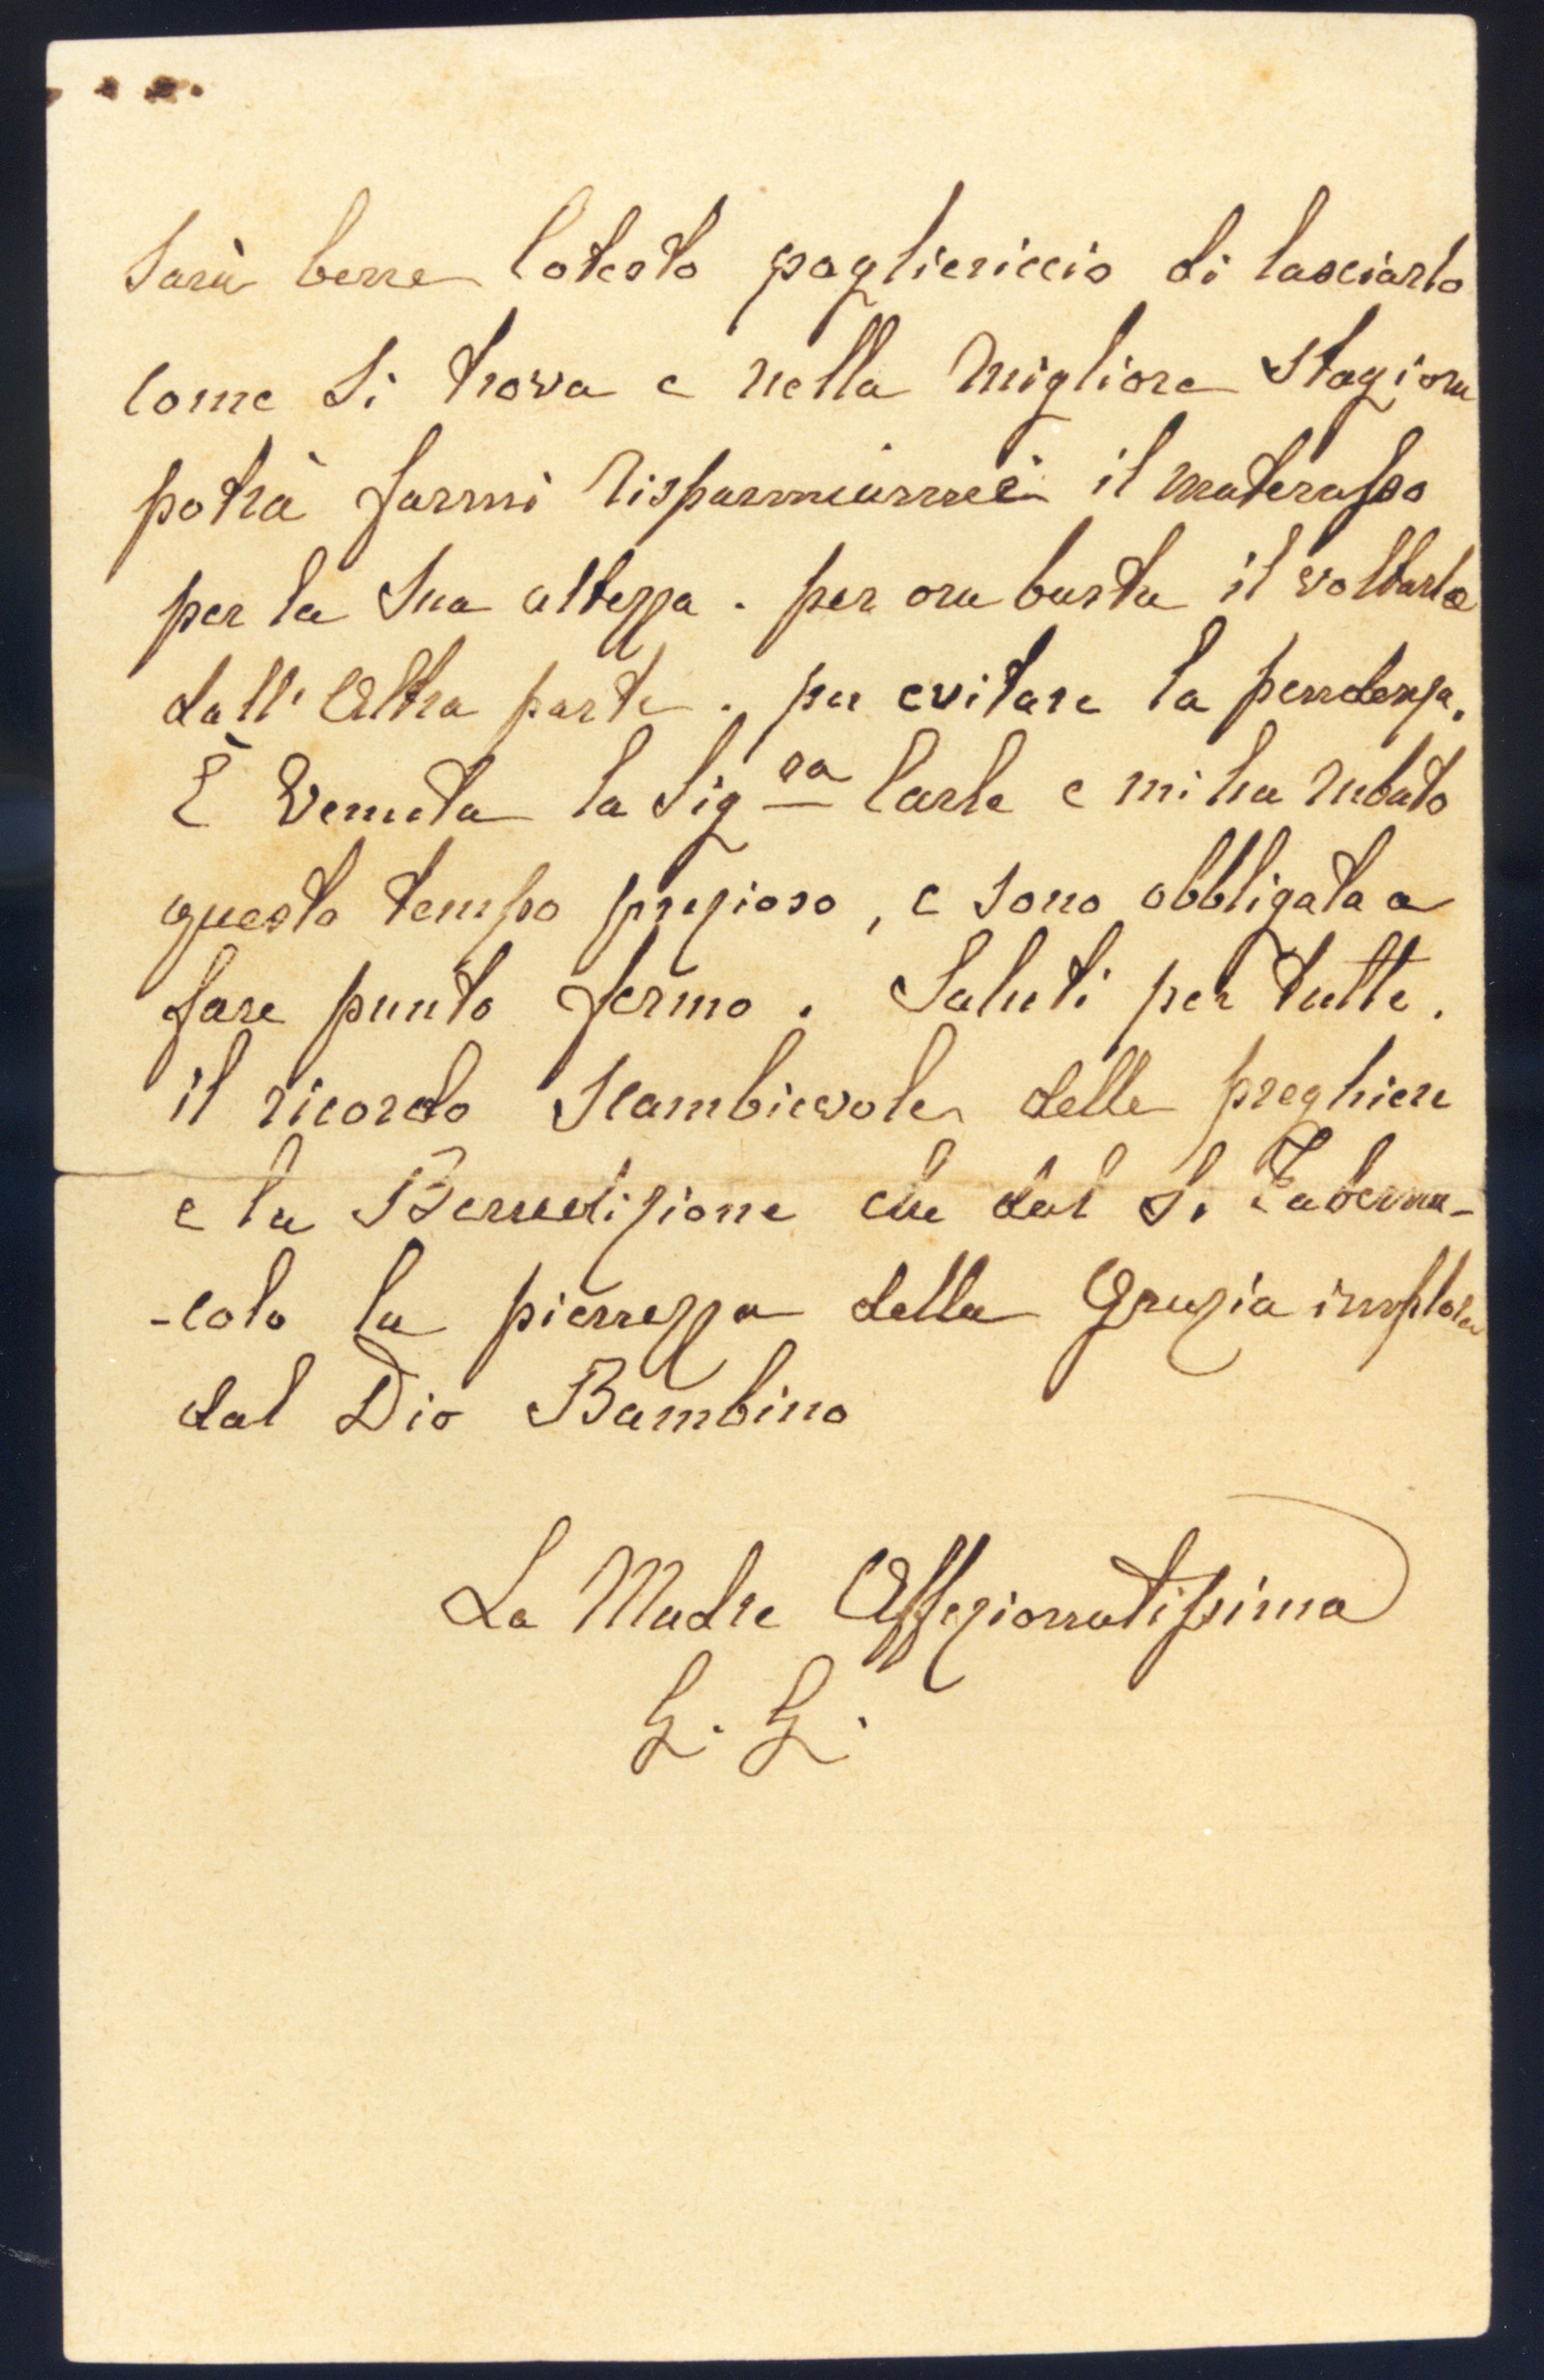 Sarà bene Cotesto pagliericcio di lasciarlo
Come Si trova e nella Migliore Stagione
potrà farmi risparmiarmi il materasso
per la Sua altezza. per ora basta il voltarlo
dall'Altra parte. per evitare la pendenza.
È Venuta la Sig.ra Carla e mi ha rubato
questo tempo prezioso, e sono obbligata a
fare punto fermo. Saluti per tutte.
il ricordo Scambievole delle preghiere
e la Benedizione che dal S. Taberna-
-colo la pienezza della Grazia implora
dal Dio Bambino
La Madre Affezionatissima
G. G.